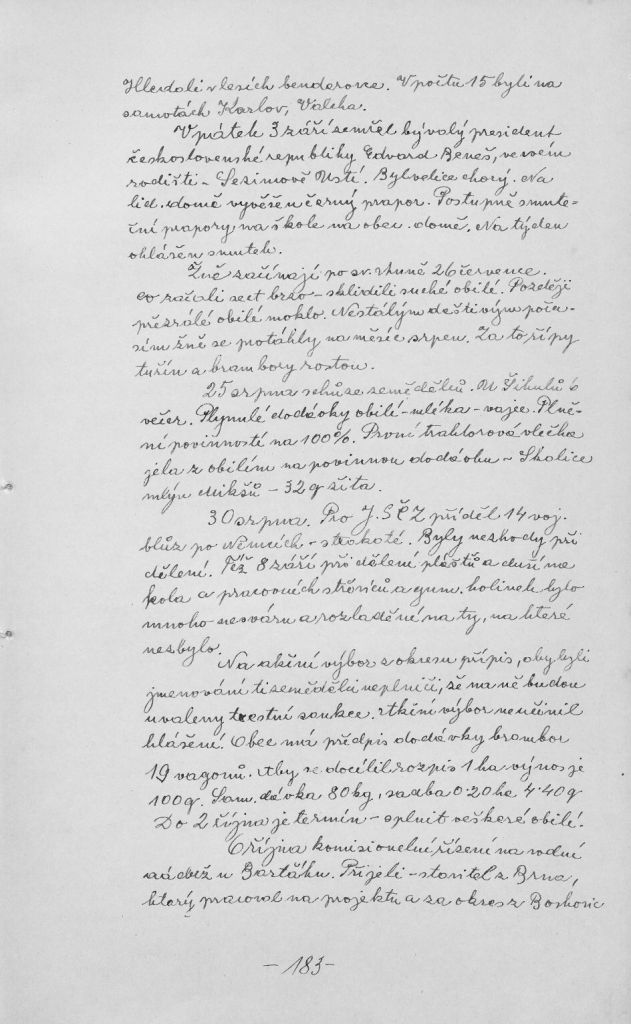 Hledali v lesích benderovce. V počtu 15 byli na
samotách Karlov, Valcha.
V pátek 3 září zemřel bývalý president
československé republiky Edvard Beneš, ve svém
rodišti - Sezimově Ustí. Byl velice chorý. Na
lid. domě vyvěšen černý prapor. Postupně smute=
ční prapory na škole na obec. domě. Na týden
ohlášen smutek.
Žně začínají po sv. Anně 26 července.
Co začali sect brzo - sklidili suché obilé. Později
přezrálé obilé moklo. Nestálým deštivým poča-
sím žně se potáhly na měsíc srpen. Za to řípy
tuřín a brambory rostou.
25 srpna schůze zemědělců. U Šikulů 6
večer. Plynulé dodávky obilé - mléka - vajec. Plně-
ní povinností na 100%. První traktorová vlečka
jela z obilím na povinnou dodávku - Skalice
mlýn Mikšů - 32 q žita.
30 srpna. Pro J.SČZ příděl 14 voj.
blůz po Němcích - strakaté. Byly neshody při
dělení. Též 8 září při dělení plášťů a duší na
kola a pracovních střevíců a gum. holinek bylo
mnoho nesváru a rozladění na ty, na které
nezbylo.
Na akční výbor z okresu přípis, aby byli
jmenováni ti zemědělci neplniči, že na ně budou
uvaleny trestní sankce. Akční výbor neučinil
hlášení. Obec má předpis dodávky brambor
19 vagonů. Aby se docílil rozpis 1 ha výnos je
100 q. Sam. dávka 80 kg, sadba 0·20 ha 4·40 q
Do 2 října je termín - splnit veškeré obilí.
6 října komisionelní řízení na vodní
nádrž u Bartáku. Přijeli - stavitel z Brna,
který pracoval na projektu a za okres z Boskovic
- 183 -